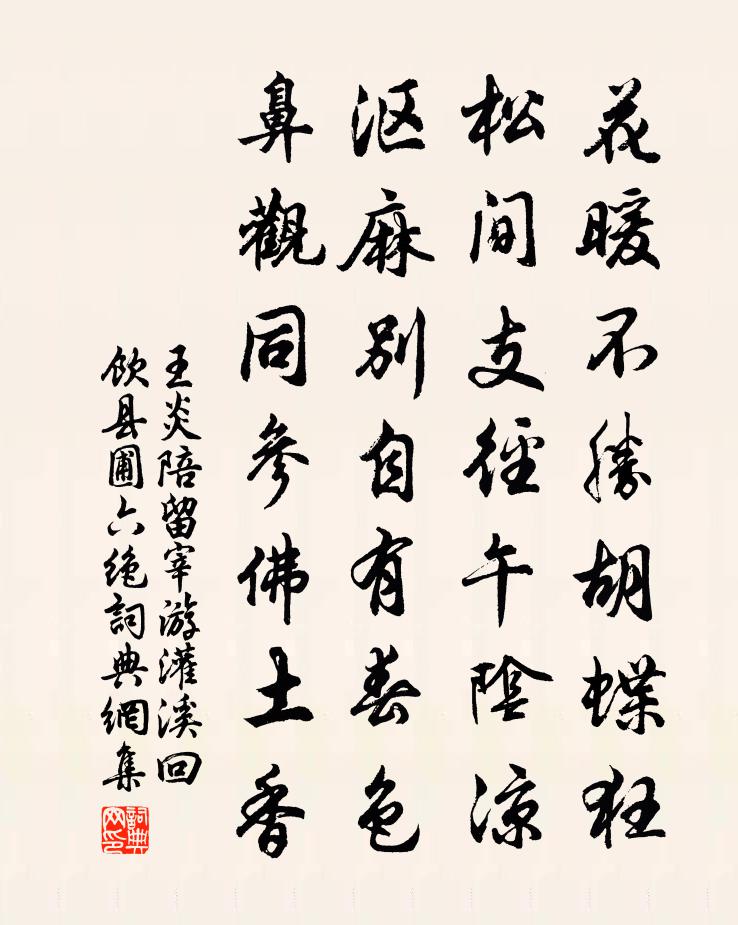 花暖不勝胡蝶狂
松间支徑午陰涼
沤麻別自有春色
鼻觀同參佛土香
王炎陪留宰游灌溪回
飲县圃六绝詞典網集
詞典
网印